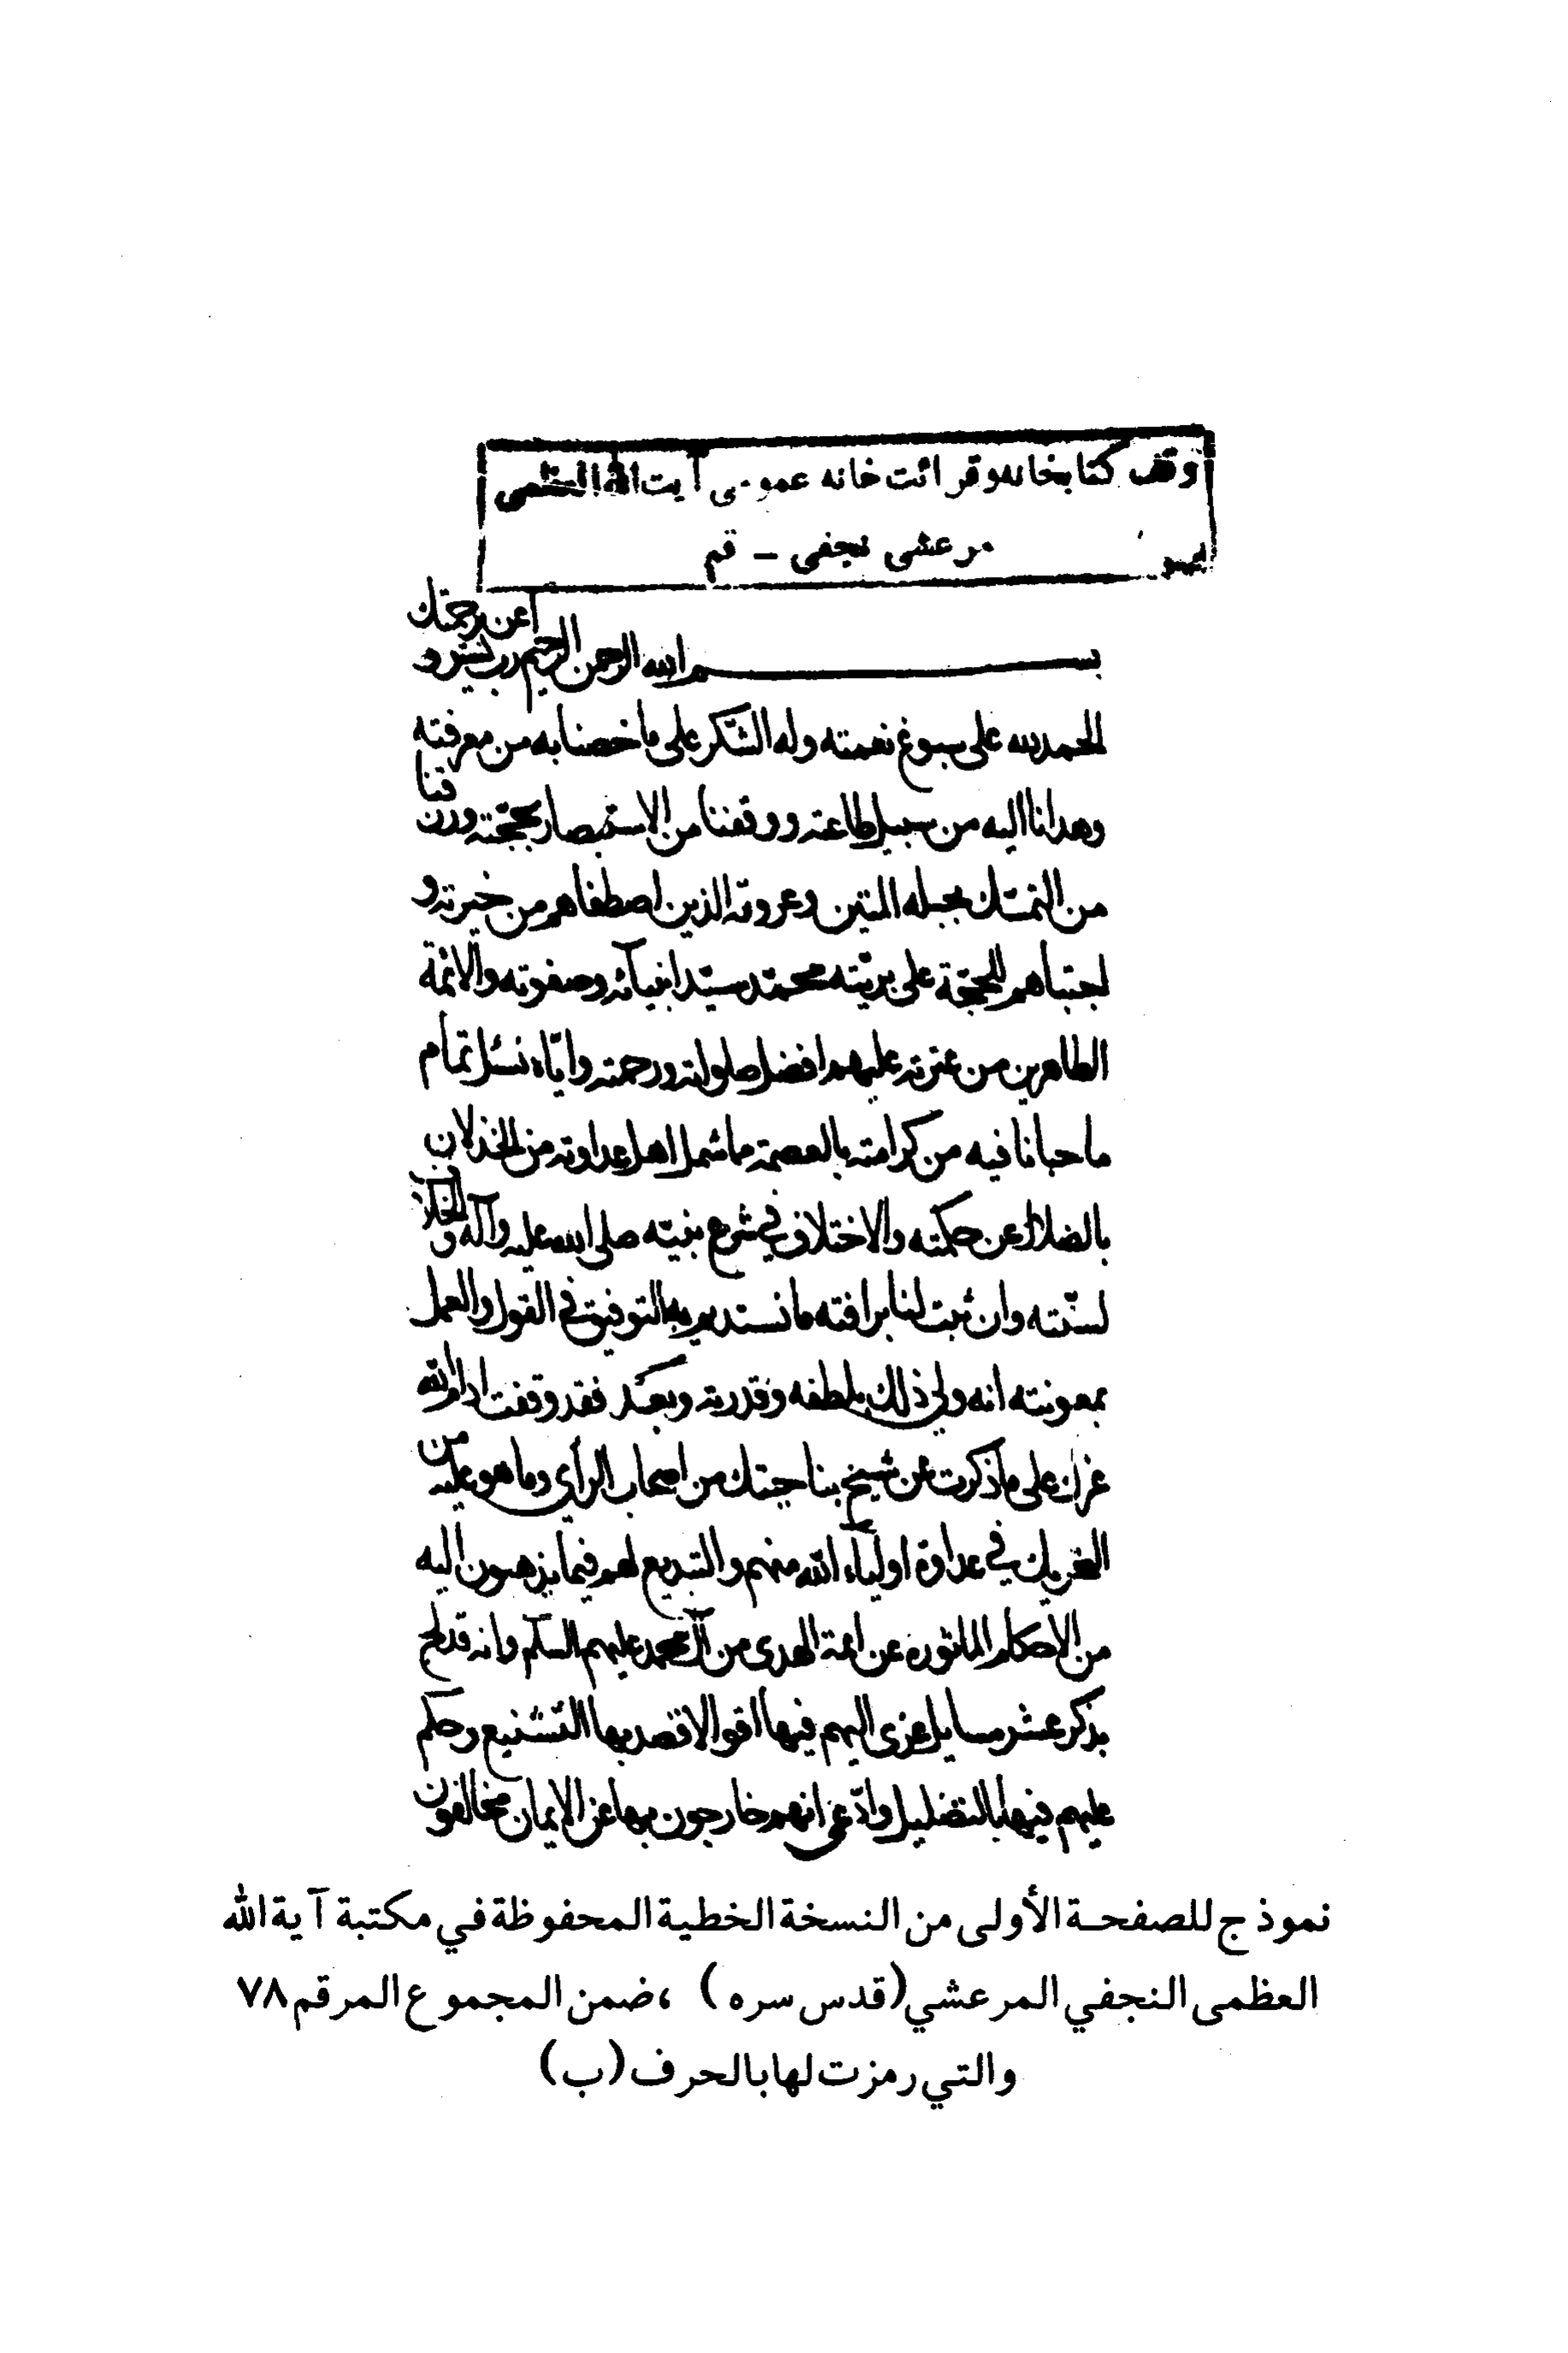 وقف كتابخانه وقرائت خانه عمومى آيت الله العظمى
مرعشى نجفى - قم
بسم الله الرحمن الرحيم رب يسر و اعن برحمتك
الحمد لله على سبوغ نعمته وله الشكر على ما خصنا به من معرفته
وهدانا اليه من سبيل طاعته ووقفنا من الاستبصار بحجته ورزقنا
من التمسّك بحبله المتين وعروته الذين اصطفاهم من خيرته و
اجتباهم للحجّة على بريّته محمّد سيّد انبيآئه وصفوته والائمة
الطاهرين من عترته عليهم افضل صلواته ورحمته وايّاه نسئل تمام
ما حبانا فيه من كرامته بالعصمة مما شمل اهل عداوته من الخذلان
بالضلال عن حكمته والاختلاف في شرع نبيّه صلى الله عليه وآله و الخلاف
لسنّته وان يثبت لنا برافته ما نستديم به التوفيق في القول والعمل
بمعونته انه ولي ذلك بلطفه وقدرته وبعد فقد وقفت ادام الله
عزك على ما ذكرت عن شيخ بناحيتك من اصحاب الرأي وما هو عليه من
التحريك في عداوة اوليآء الله منهم والتبديع لهم فيما يذهبون اليه
من الاحكام الماثورة عن ائمة الهدى من آل محمد عليهم السلم وانه قد لج
بذكر عشر مسايل عزى اليهم فيها اقوالا قصد بها التشنيع وحكم
عليهم فيها بالتضليل وادّعى انهم خارجون بها عن الايمان مخالفون
نموذج للصفحة الأولى من النسخة الخطية المحفوظة في مكتبة آية الله
العظمى النجفي المرعشي (قدس سره) ، ضمن المجموع المرقم ٧٨
والتي رمزت لها بالحرف (ب)